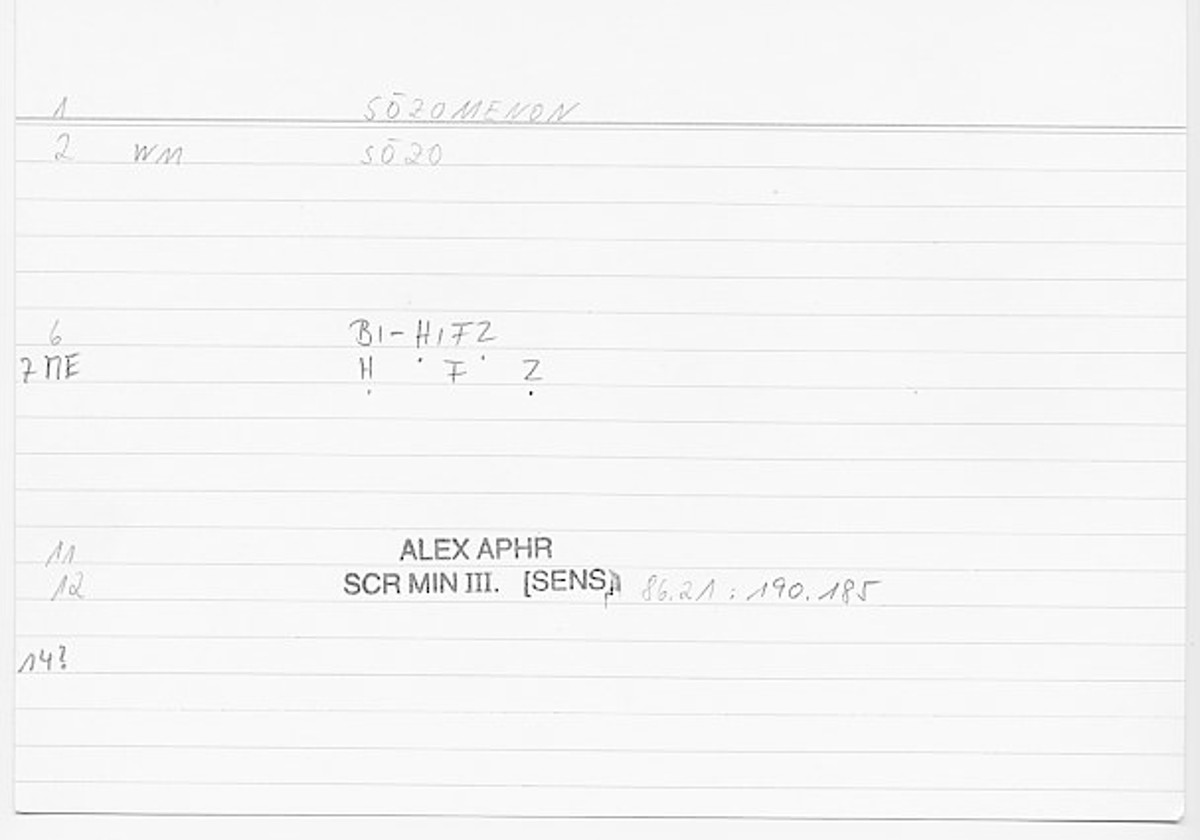 1 SŌZOMENON
2 WM SŌZO
6 BI-HIFZ
7 ME Ḥ . F . Ẓ
11 ALEX APHR
12 SCR MIN III. [SENS] 86.21 : 190.185
14?